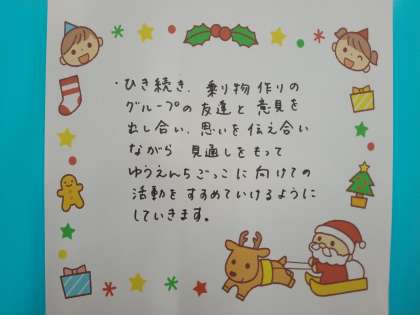 ・ひき続き、乗り物作りの
グループの友達と意見を
出し合い、思いを伝え合い
ながら見通しをもって
ゆうえんちごっこに向けての
活動をすすめていけるように
していきます。